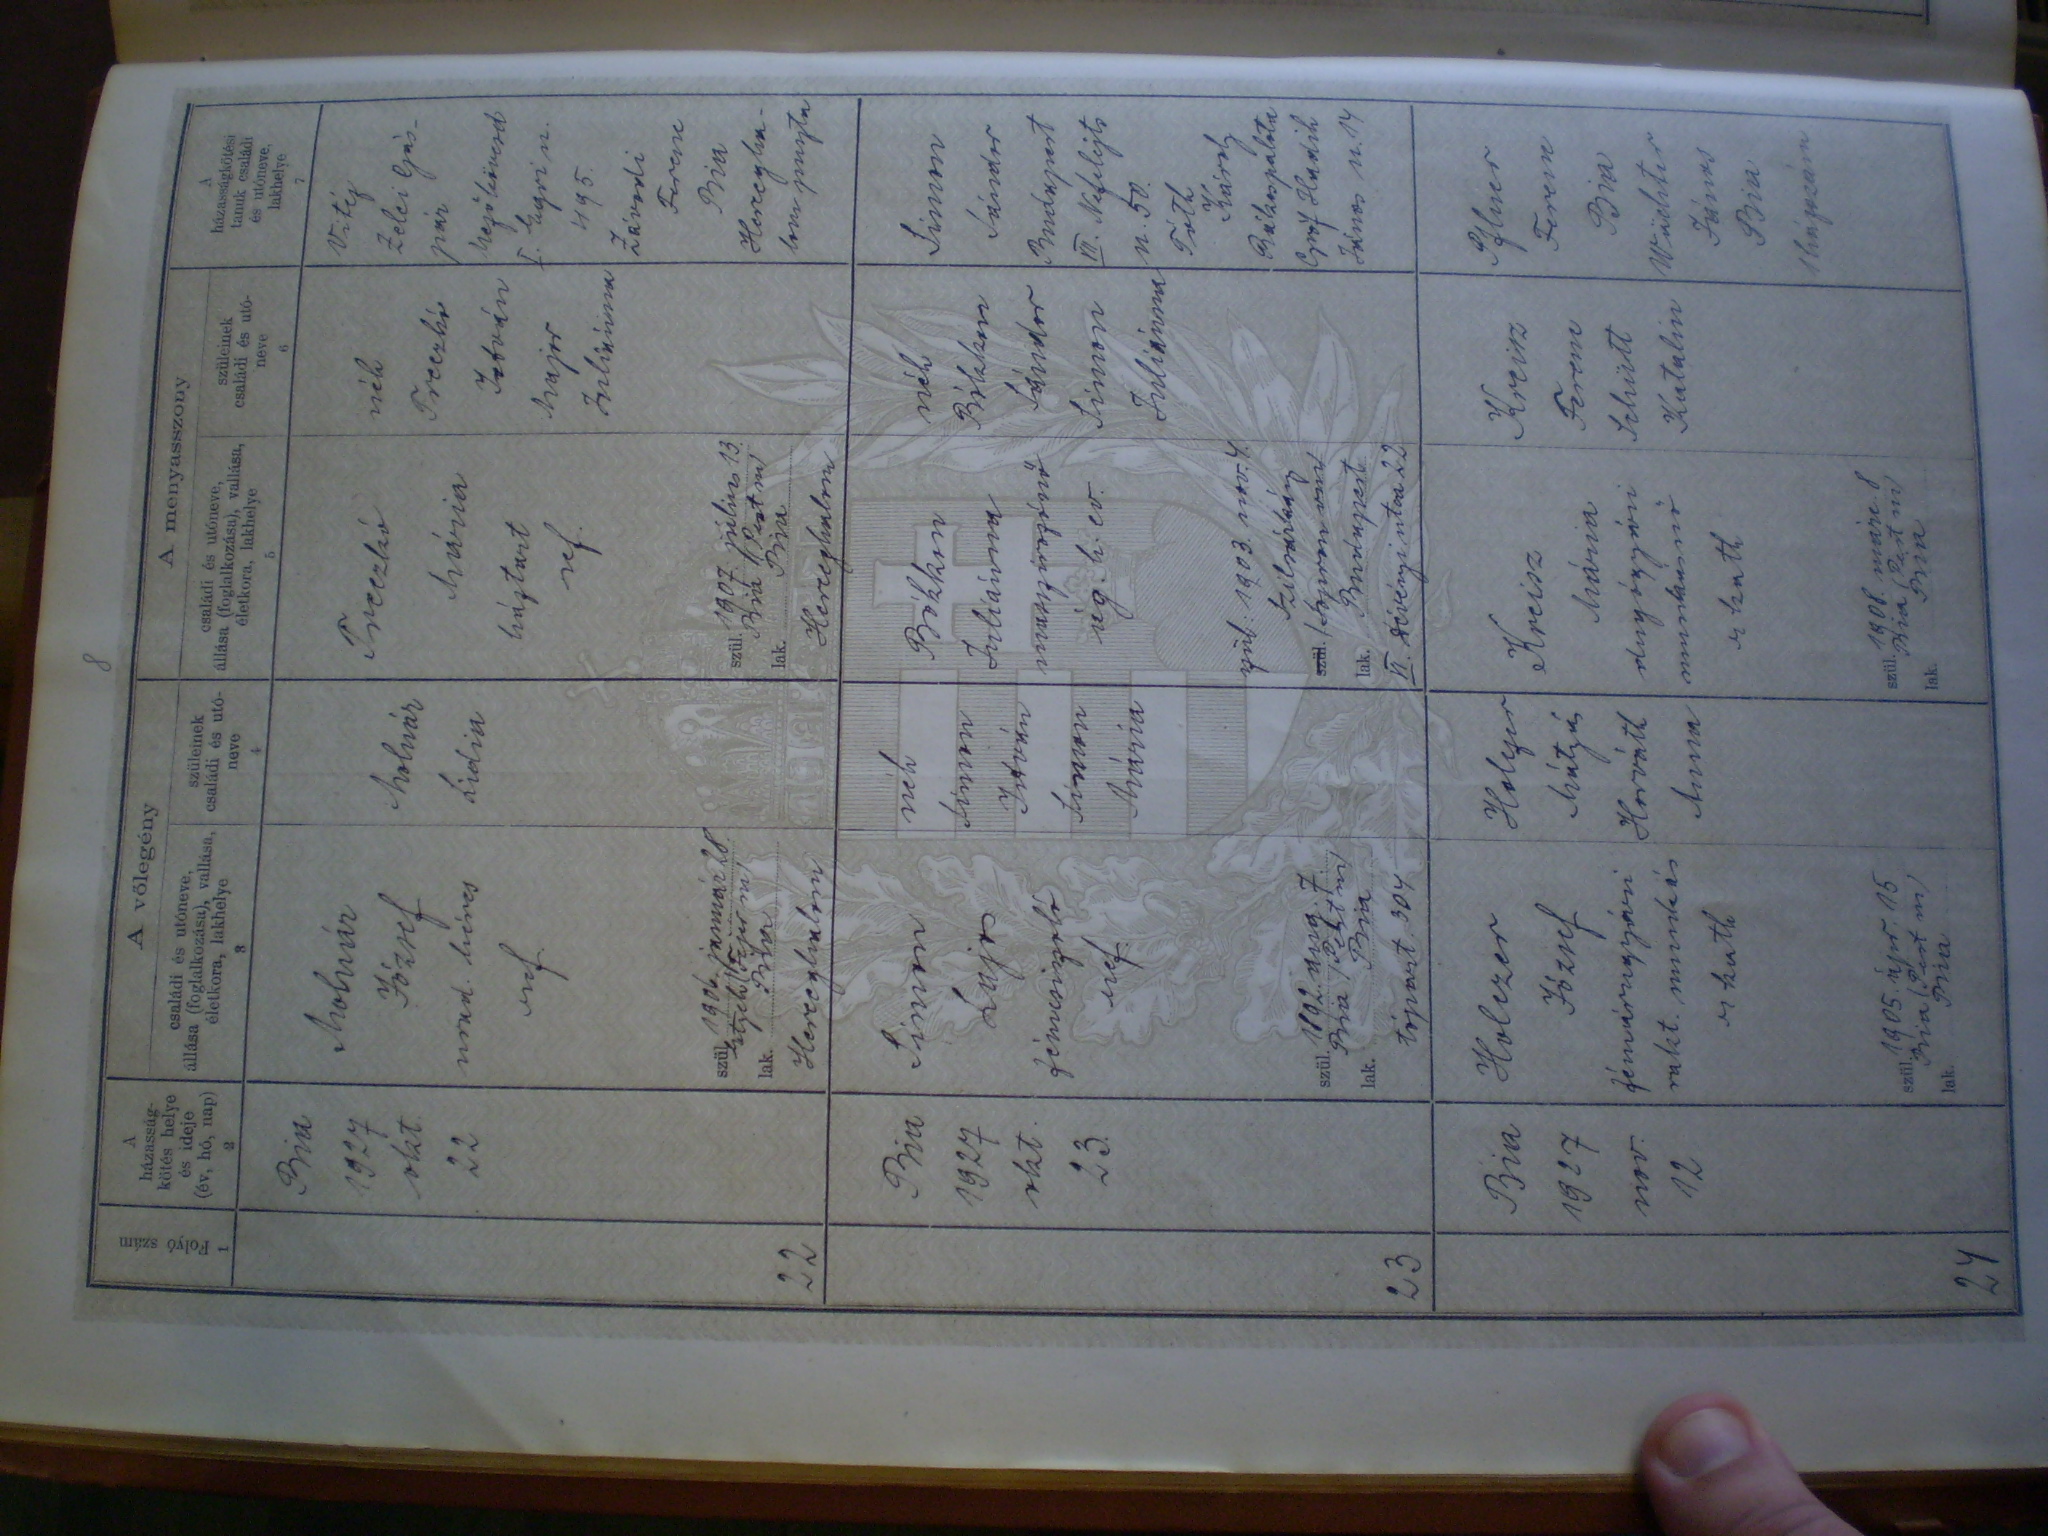 8
A
házasság-
kötés helye
és ideje
(év, hó, nap)
Folyó
szám
1
2
A vőlegény
családi és utóneve,
állása (foglalkozása), vallása,
életkora, lakhelye
3
szüleinek
családi és utó-
neve
4
A menyasszony
családi és utóneve,
állása (foglalkozása), vallása,
életkora, lakhelye
5
szüleinek
családi és utó-
neve
6
A
házasságkötési
tanuk családi
és utóneve,
lakhelye
7
22
Bia
1927
okt.
22
Molnár
József
urad. béres
ref.
szül. 1906. január 28
lak. Bia
Herceghalom
Molnár
Lidia
Treczkó
Mária
házt art
ref.
szül. 1907. július 13
Bia (Pest m)
lak. Bia
Herceghalom
néh
Treczkó
István
Major
Juliánna
Vitéz
Zelei Gás-
pár
Mezőkövesd
I. Egri u.
495.
Závodi
Ferenc
Bia
Hercegha-
lom puszta
23
Bia
1927
okt.
23.
Simon
Lajos
fémcsiszoló
ref.
szül. 1892. aug. 7
Bia (Pest m)
lak. Bia
néh
Simon
István
Simon
Mária
Bokkon
Juliánna
ág. h. ev.
szül: 1903. nov. 4.
Szilsárkány
szül. (Sopron vm)
lak. Budapest
VI. Dévényi utca 22
néh
Bokkon
Sándor
Simon
Juliánna
Simon
Sándor
Budapest
III. Nefelejts
u. 50.
Tóth
Károly
Rákospalota
Gróf Hadik
János u. 14
24
Bia
1927
nov.
12
Holczer
József
fémárugyári
rakt. munkás
r kath
szül. 1905. ápr. 15
Bia (Pest m)
lak. Bia
Holczer
Mátyás
Horváth
Anna
Kreisz
Mária
munkásnő
r kath
szül. 1908. márc. 8
Bia (Pest m)
lak. Bia
Kreisz
Ferenc
Schütt
Katalin
Ferenc
Bia
Wächter
János
Bia